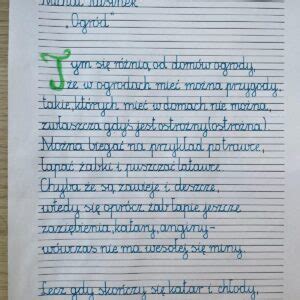 Michał Rusinek
„Ogród"
Tym się różnią od domów ogrody,
że w ogrodach mieć można przygody,
takie, których mieć w domach nie można,
zwłaszcza gdyś jest ostrożny(ostrożna).
Można biegać na przykład po trawce,
łapać żabki i puszczać latawce.
Chyba że są zawieje i deszcze,
wtedy się oprócz żab łapie jeszcze
zaziębienia, katary, anginy-
wówczas nie ma wesołej się miny.
Lecz gdy skończy się katar i chłody,